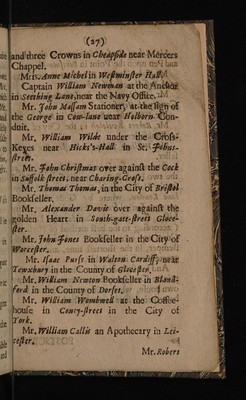 (27)
and three Crowns in Cheapside near Mercers
Chappel.
Mrs. Anne Michel in Westminster Hall.
Captain William Newman at the Anchor
in Seething Lane, near the Navy Office.
Mr. John Massam Stationer, at the sign of
the George in Cow-lane near Holborn Con-
duit.
Mr. William Wilde under the Cross-
Keyes near Hicks's-Hall in St. Johns-
street.
Mr. John Christmas over against the Cock
in Suffolk street, near Charing-Cross.
Mr. Thomas Thomas, in the City of Bristol
Bookseller.
Mr. Alexander Davie over against the
golden Heart in South-gate-street Gloce-
ster.
Mr. John Jones Bookseller in the City of
Worcester.
Mr. Isaac Purst in Walton Cardiff, near
Tewxbury in the County of Glocester.
Mr. William Newton Bookseller in Bland-
ford in the County of Dorset.
Mr. William Wombwell at the Coffee-
house in Coney-street in the City of
York.
Mr. William Callis an Apothecary in Lei-
cester.
Mr. Robert